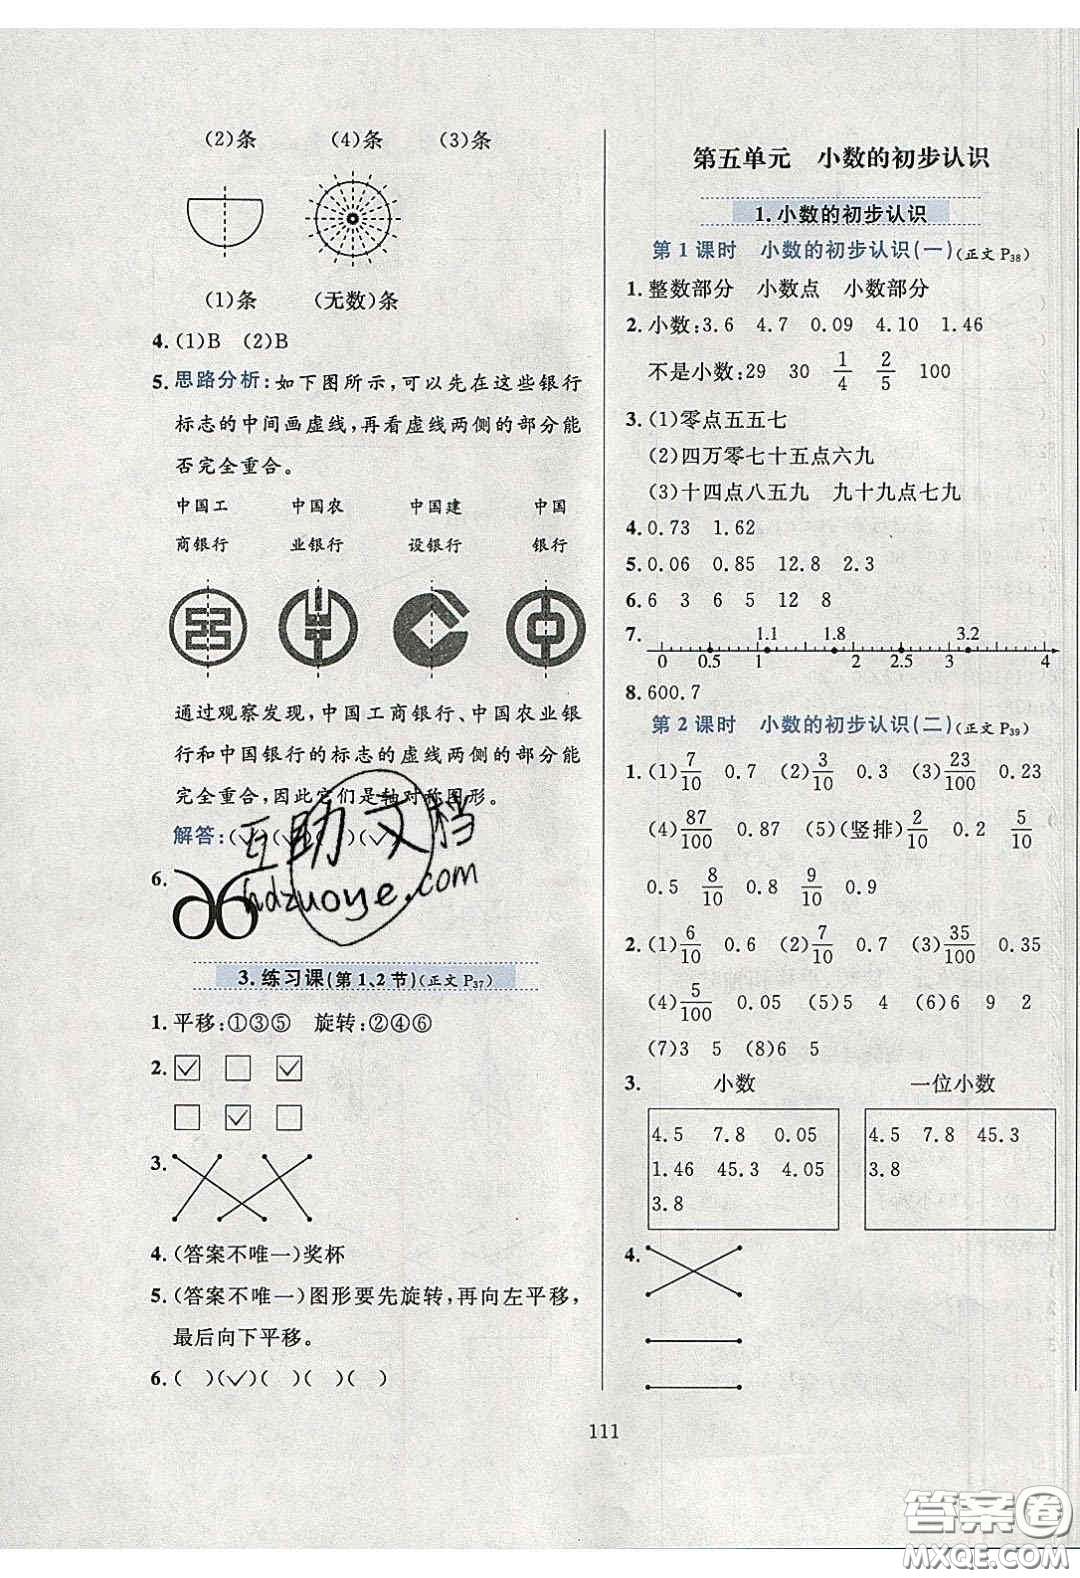 (2)条 (4)条 (3)条
(1)条 (无数)条
4.(1)B (2)B
5.思路分析:如下图所示,可以先在这些银行
标志的中间画虚线,再看虚线两侧的部分能
否完全重合。
中国工 中国农 中国建 中国
商银行 业银行 设银行 银行
通过观察发现,中国工商银行、中国农业银
行和中国银行的标志的虚线两侧的部分能
完全重合,因此它们是轴对称图形。
解答:(✓)(✓)( )(✓)
6.
互助文档
hdzuoye.com
3.练习课(第1、2节)(正文 P37)
1.平移:①③⑤ 旋转:②④⑥
2.
3.
4.(答案不唯一)奖杯
5.(答案不唯一)图形要先旋转,再向左平移,
最后向下平移。
6.( )(✓)( )( )( )
第五单元 小数的初步认识
1.小数的初步认识
第1课时 小数的初步认识(一)(正文 P38)
1.整数部分 小数点 小数部分
2.小数:3.6 4.7 0.09 4.10 1.46
不是小数:29 30 1/4 2/5 100
3.(1)零点五五七
(2)四万零七十五点六九
(3)十四点八五九 九十九点七九
4.0.73 1.62
5.0.06 0.85 12.8 2.3
6.6 3 6 5 12 8
7. 1.1 1.8 3.2
0 0.5 1 2 2.5 3 4
8.600.7
第2课时 小数的初步认识(二)(正文 P39)
1.(1)7/10 0.7 (2)3/10 0.3 (3)23/100 0.23
(4)87/100 0.87 (5)(竖排)2/10 0.2 5/10
0.5 8/10 0.8 9/10 0.9
2.(1)6/10 0.6 (2)7/10 0.7 (3)35/100 0.35
(4)5/100 0.05 (5)5 4 (6)6 9 2
(7)3 5 (8)6 5
3. 小数 一位小数
4.5 7.8 0.05 4.5 7.8 45.3
1.46 45.3 4.05 3.8
3.8
4.
111
答案圈
MXQE.COM